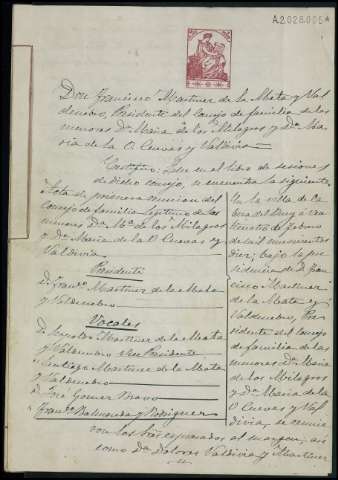 A2.028.005
Don Francisco Martinez de la Mata y Val
denebro, Presidente del Consejo de familia, de las
menores Dª Maria de los Milagros y Dª Ma
ria de la O Cuevas y Valdivia
Certifico: que en el libro de sesiones
de dicho consejo, se encuentra la siguiente
Acta de primera reunion del
Consejo de familia legitimo de las
menores Dª Mª de los Milagros
y Dª Maria de la O Cuevas y
Valdivia
Presidente
D. Franco Martinez de la Mata
y Valdenebro
Vocales
D. Martinez de la Mata
y Valdenebro Vice Presidente
D. Santiago Martinez de la Mata
y Valdenebro
D. José Gomez Bravo
Franco y Rodriguez
En la villa de Ca
bra del
de
de mil novecientos
diez; bajo la pre
sidencia de D. Fran
cisco Martinez
de la Mata y
Valdenebro, Pre
sidente del Consejo
de familia de las
menores Dª Maria
de los Milagros
y Dª Maria de la
O Cuevas y Val
divia, se reunie
ron los Sres. expresados al margen, asi
como Dª Dolores Valdivia y Martinez